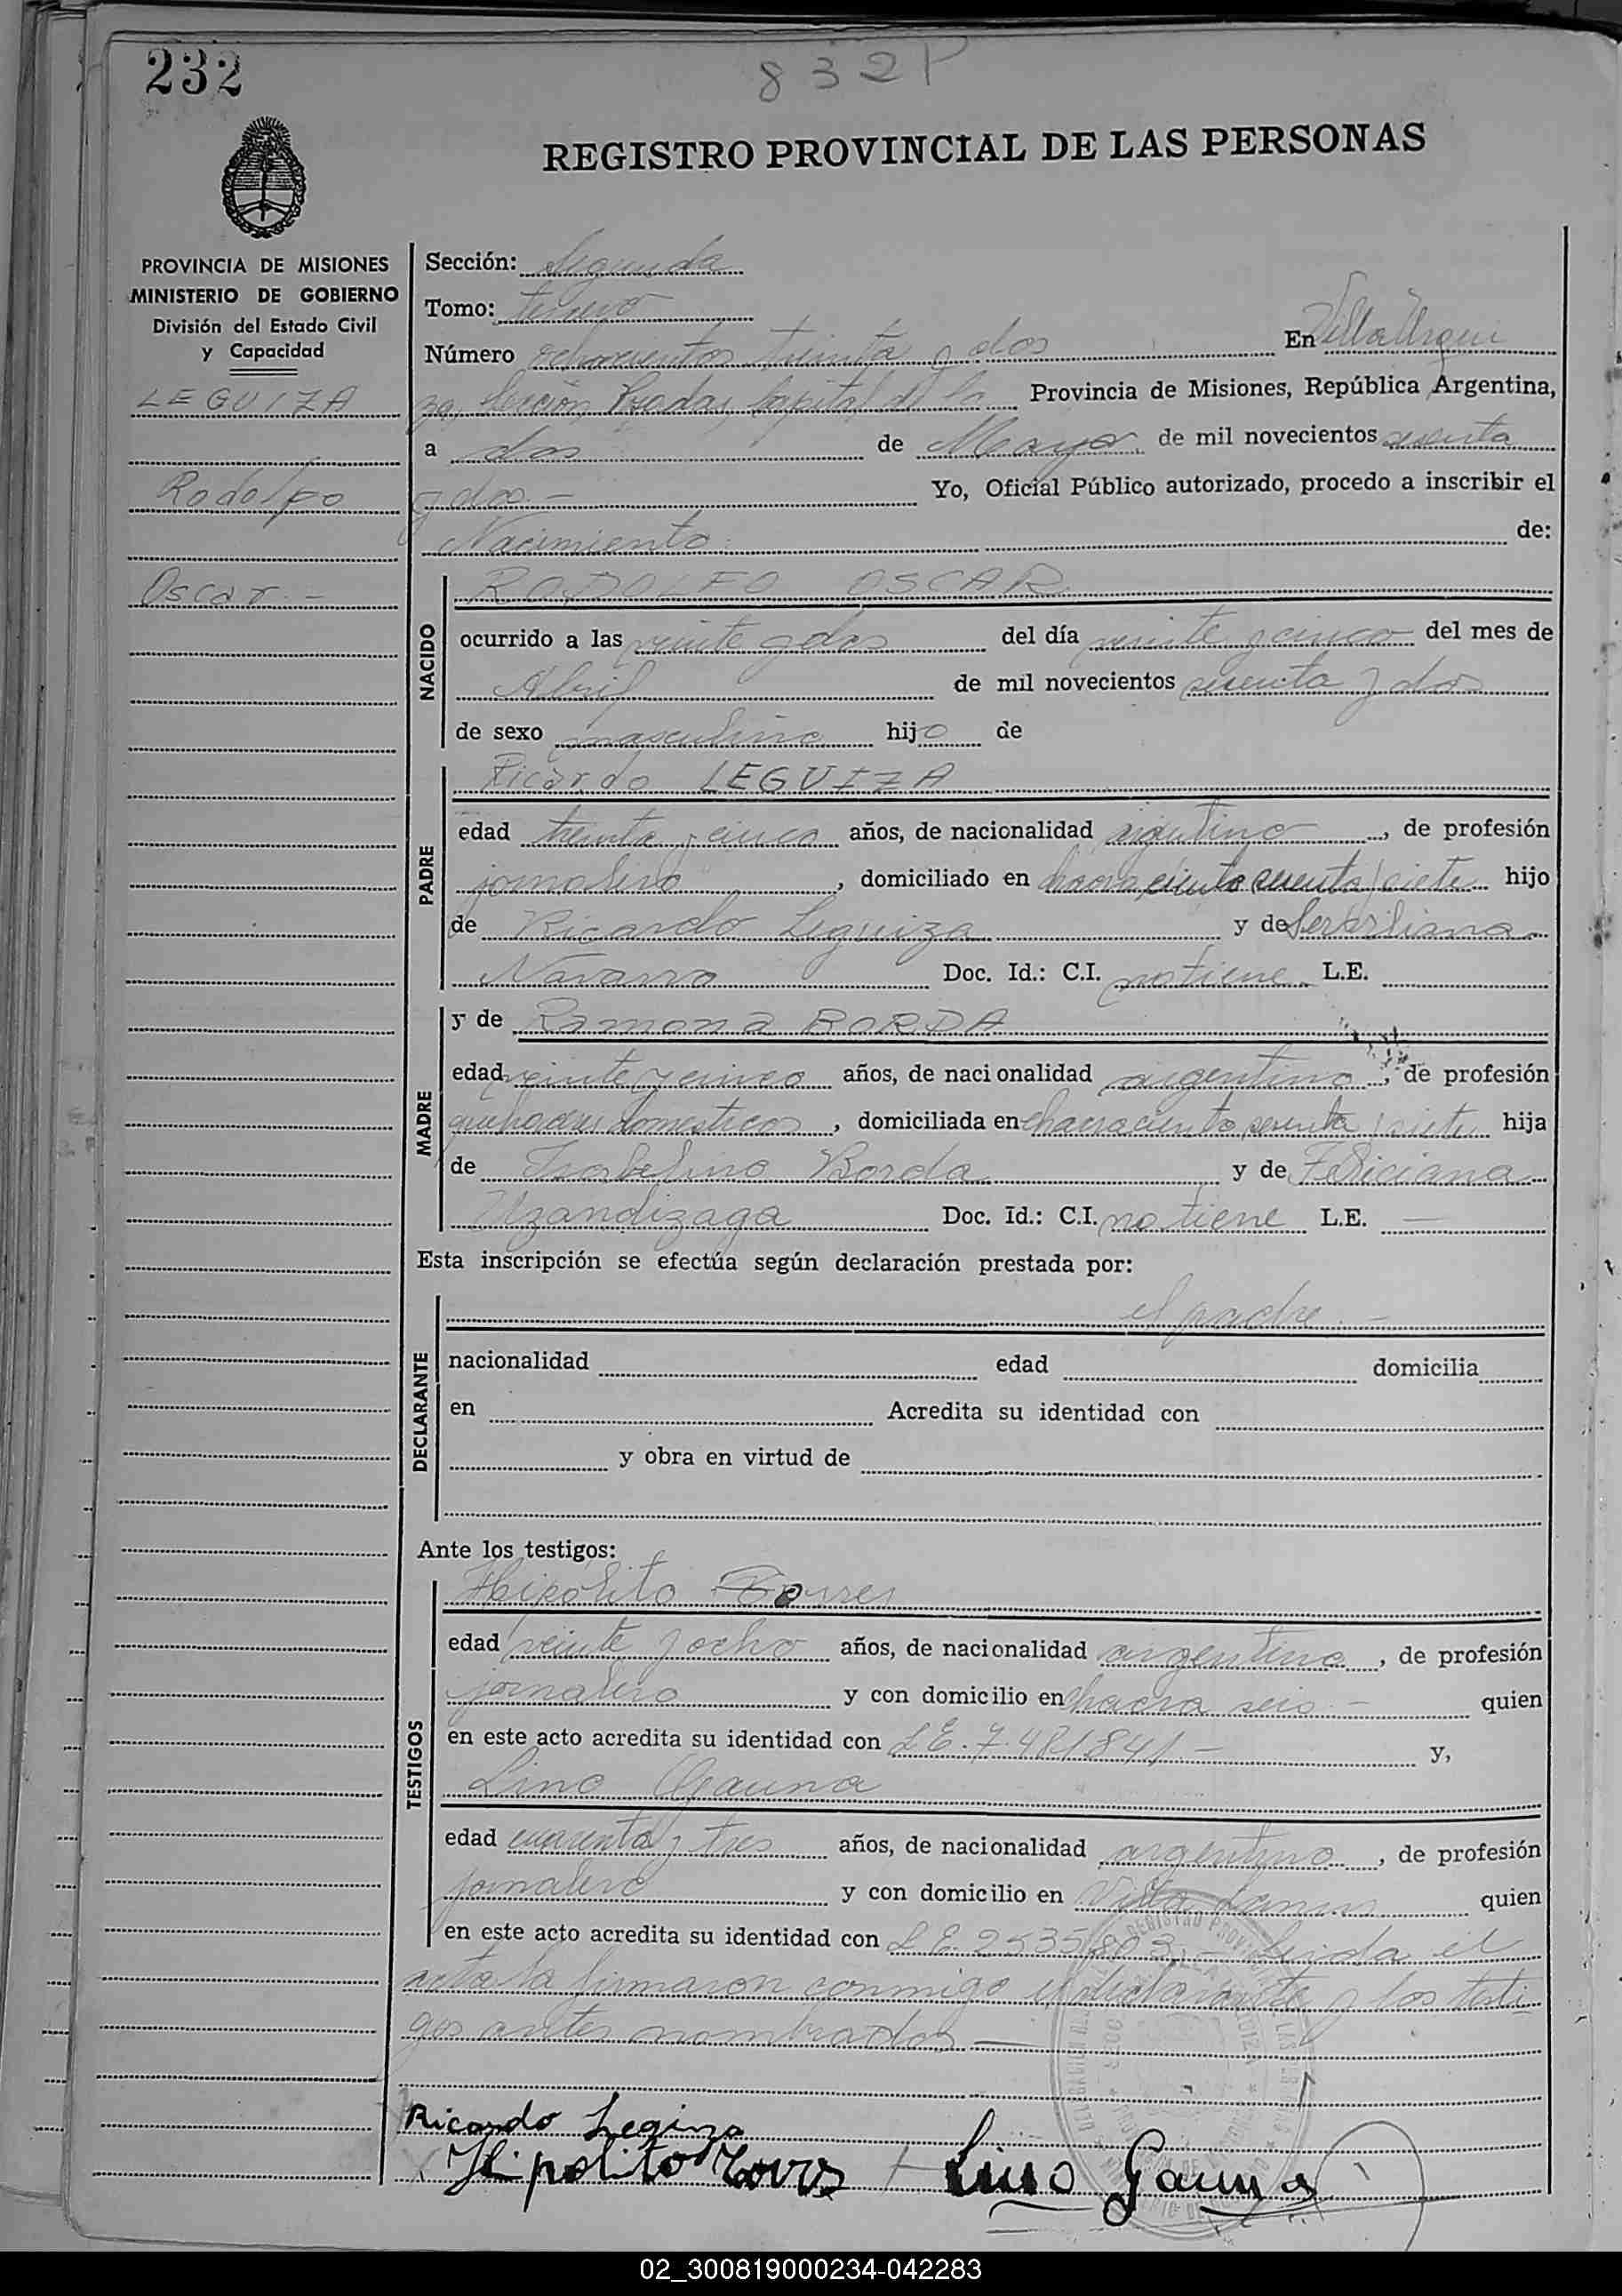 232
832 P
REGISTRO PROVINCIAL DE LAS PERSONAS
PROVINCIA DE MISIONES
MINISTERIO DE GOBIERNO
División del Estado Civil
y Capacidad
LEGUIZA
Rodolfo
Oscar.-
Sección: Segunda
Tomo: tercero
Número ochocientos treinta y dos En Villa Urqui
za, Sección Posadas, Capital de la Provincia de Misiones, República Argentina,
a dos de Mayo de mil novecientos sesenta
y dos.- Yo, Oficial Público autorizado, procedo a inscribir el
Nacimiento de:
NACIDO
RODOLFO OSCAR
ocurrido a las veinte y dos del día veinte y cinco del mes de
Abril de mil novecientos sesenta y dos
de sexo masculino hijo de
PADRE
Ricardo LEGUIZA
edad treinta y cinco años, de nacionalidad argentino, de profesión
jornalero, domiciliado en chacra ciento sesenta y siete hijo
de Ricardo Leguiza y de
Navarro Doc. Id.: C.I. no tiene L.E.
MADRE
y de Ramona BORDA
edad veinte y cinco años, de nacionalidad argentina, de profesión
quehaceres domesticos, domiciliada en chacra ciento sesenta y siete hija
de Isabelino Borda y de Feliciana
Uzandizaga Doc. Id.: C.I. no tiene L.E. —
Esta inscripción se efectúa según declaración prestada por:
DECLARANTE
el padre.-
nacionalidad edad domicilia
en Acredita su identidad con
y obra en virtud de
Ante los testigos:
TESTIGOS
Hipólito Torres
edad veinte y ocho años, de nacionalidad argentino, de profesión
jornalero y con domicilio en chacra seis.- quien
en este acto acredita su identidad con L.E. 7.481841.- y,
Lino Gauna
edad cuarenta y tres años, de nacionalidad argentino, de profesión
jornalero y con domicilio en Villa Lanus quien
en este acto acredita su identidad con L.E. 2535803.- Leida el
acta la firmaron conmigo el declarante y los testi
gos antes nombrados.—
Ricardo Legiza
Hipolito Torres Lino Gauna
02_300819000234-042283